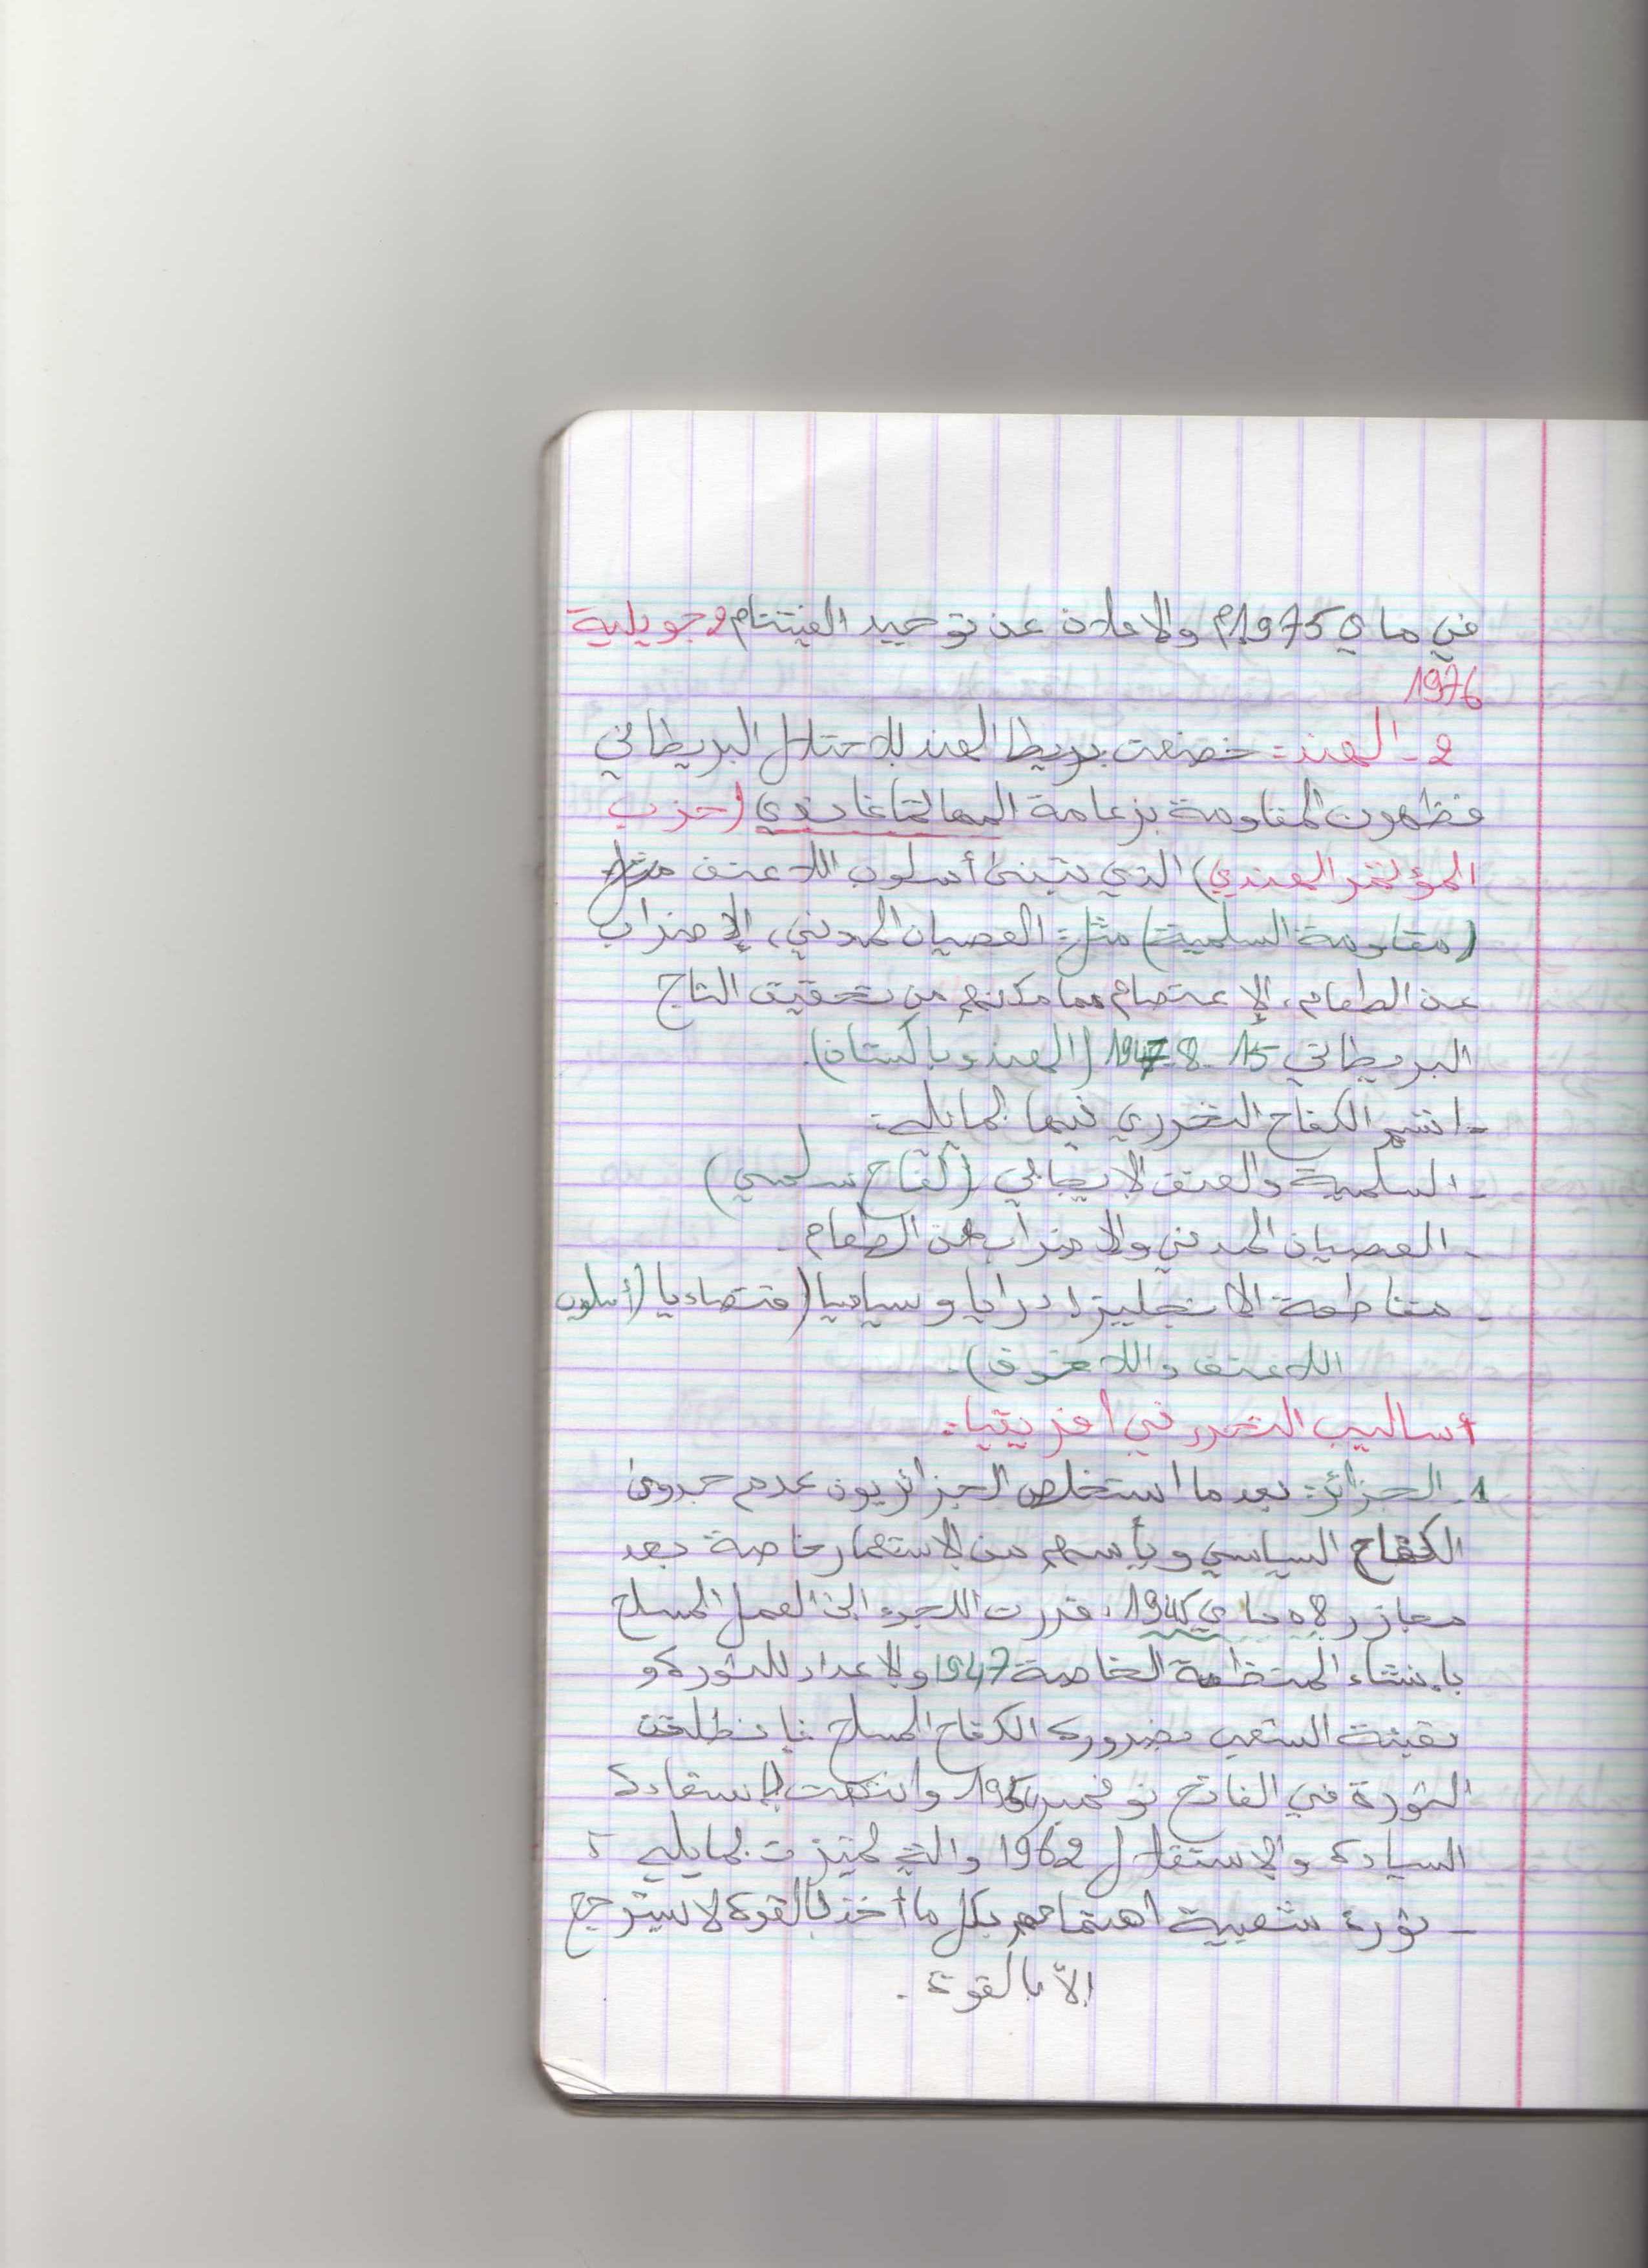 في ماي 1975م والاعلان عن توحيد الفيتنام 2 جويلية
1976
2 - الهند: خضعت بريطا الهند للاحتلال البريطاني
فظهرت المقاومة بزعامة المهاتما غاندي (حزب
المؤتمر الهندي) الذي تبنى أسلوب اللاعنف مثل
(مقاومة السلمية) مثل: العصيان المدني، الإضراب
عن الطعام، الإعتصام مما مكنهم من تحقيق التاج
البريطاني 15-8-1947 (الهند وباكستان).
- اتسم الكفاح التحرري فيها بمايلي:
- السلمية والعنف الايجابي (كفاح سلمي)
- العصيان المدني والاضراب عن الطعام.
- مقاطعة الانجليز ادرايا وسياسيا اقتصاديا (أسلوب
اللاعنف واللاخوف).
أساليب التحرر في افريقيا:
1- الجزائر: بعد ما استخلص الجزائريون عدم جدوى
الكفاح السياسي ويأسهم من الاستعمار خاصة بعد
مجازر 08 ماي 1945، قررت اللجوء الى العمل المسلح
بإنشاء المنظمة الخاصة 1947 والاعداد للثورة و
تعبئة الشعب بضرورة الكفاح المسلح فانطلقت
الثورة في الفاتح نوفمبر 1954 وانتهت باستعادة
السيادة والاستقلال 1962 والتي تميزت بمايلي:
- ثورة شعبية اهتمامهم بكل ما أخذ بالقوة لا يسترجع
الاّ بالقوة.